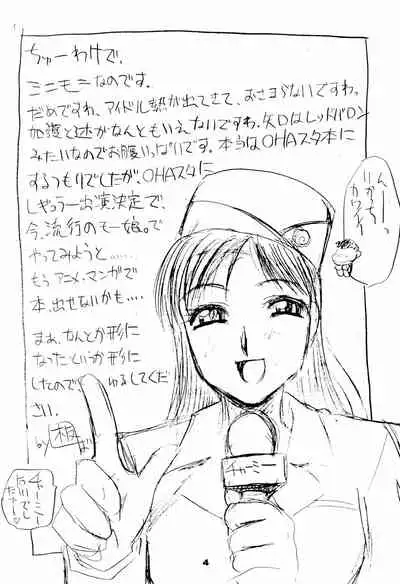 ちゅーわけで、
ミニモニなのです。
だめですわ、アイドル熱が出てきて、おさまらないですわ。
加護と辻がなんともいえないですわ。矢口はレッドバロン
みたいなのでお腹いっぱいです。本当はOHAスタ本に
するつもりでしたが、OHAスタに
レギュラー出演決定で、
今、流行のモー娘。で
やってみようと……
もうアニメ・マンガで
本、出せないかも……
まぁ、なんとか形に
なったというか形に
したので、ゆるしてくだ
さい。
by
んーっ
カワイイ
チャーミー
チャーミー
4